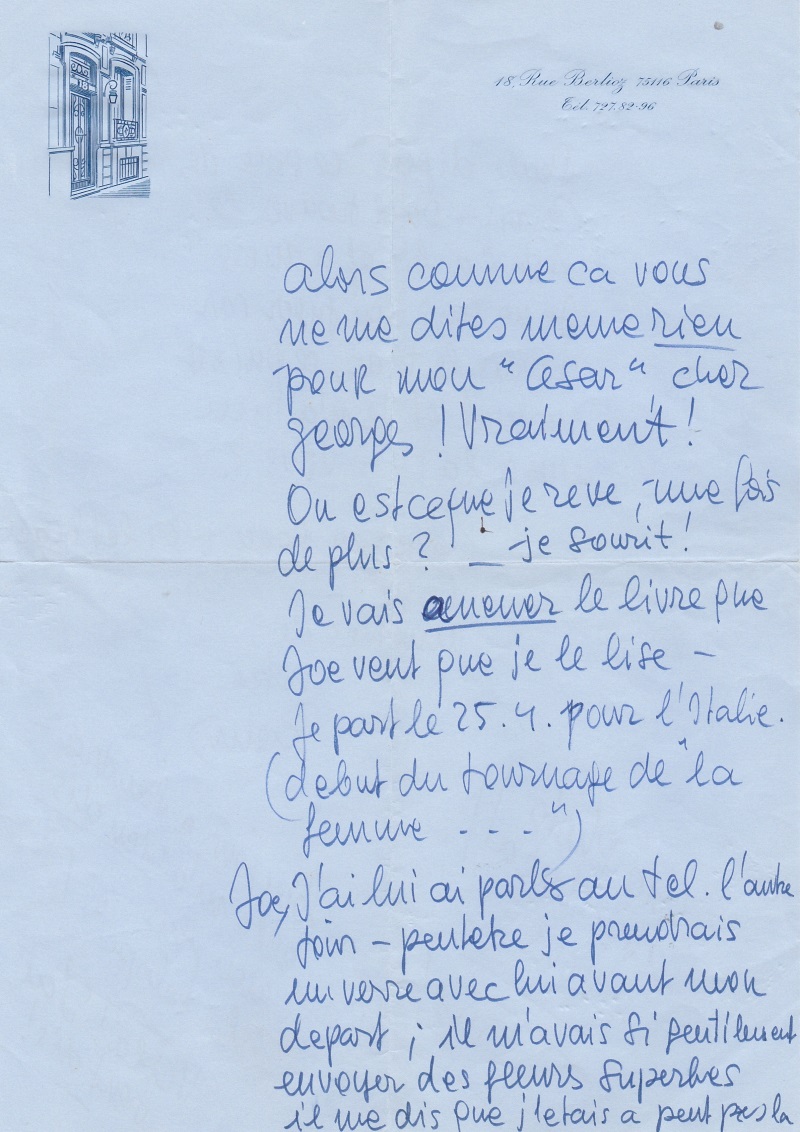 18, Rue Berlioz 75116 Paris
Tel. 727.82-96
alors comme ca vous
ne me dites meme rien
pour mon "Cesar", cher
georges ! Vraiment !
Ou estceque je reve, une fois
de plus ? — je sourit !
Je vais amener le livre que
Joe veut que je le lise –
Je part le 25. 4. pour l'Italie.
(debut du tournage de "la
femme - - - ")
Joe, J'ai lui ai parlé au tel. l'autre
jour – peutetre je prendrais
un verre avec lui avant mon
depart ; il m'avais si gentilement
envoyer des fleurs superbes
il me dis que j'etais a peut pres la